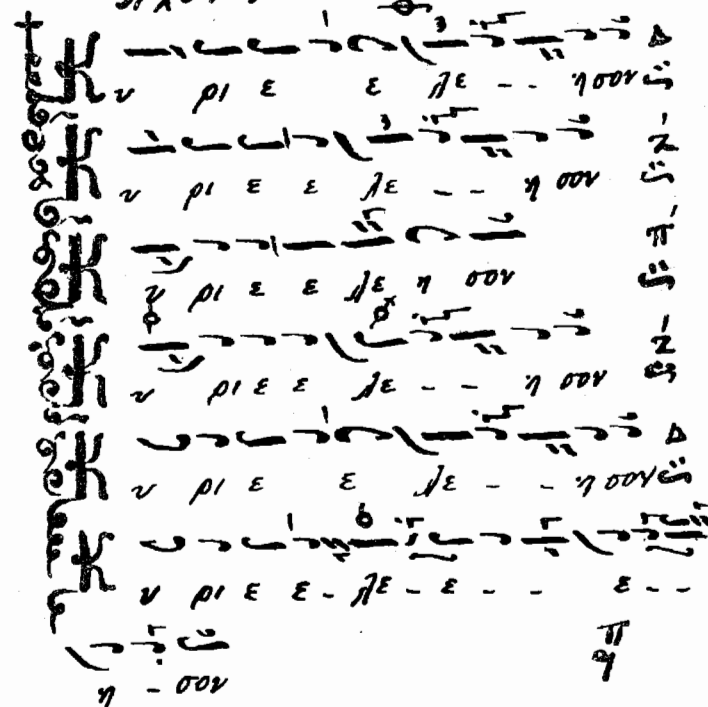 Κυ ρι ε ε λε - - η σον Δ
Κυ ρι ε ε λε - - η σον Ζ
Κυ ρι ε ε λε η σον Π
Κυ ρι ε ε λε - - η σον Ζ
Κυ ρι ε ε λε - - η σον Δ
Κυ ρι ε ε - λε - ε - - ε - -
η - σον Π